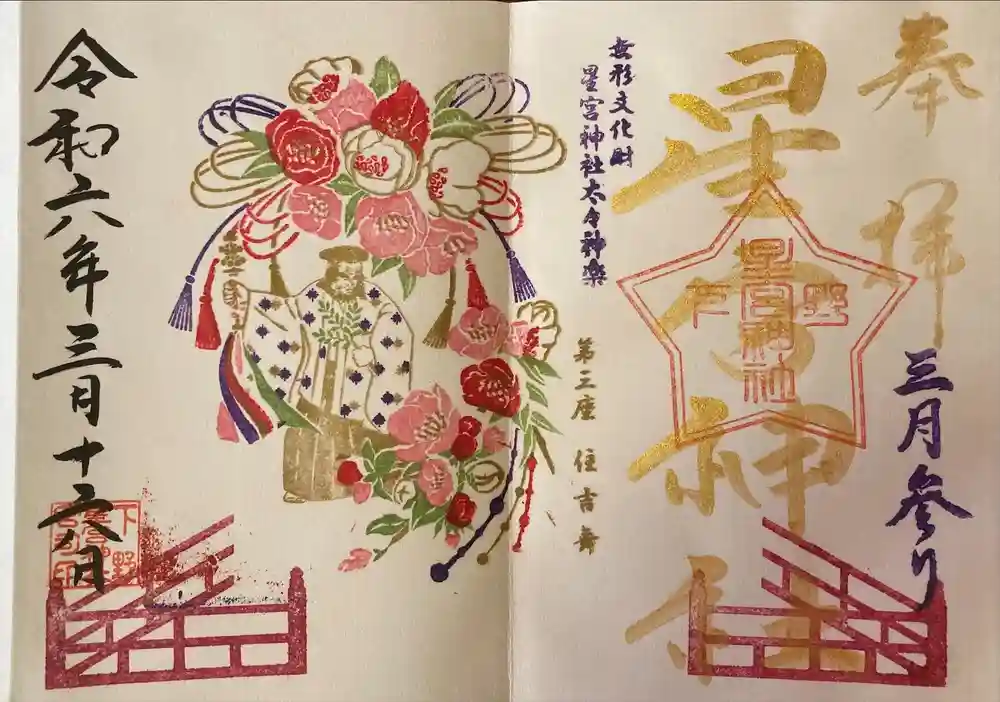 奉拝
三月参り
星宮神社
下野
星宮神社
無形文化財
星宮神社太々神楽
第三座 住吉舞
令和六年三月十六日
下野